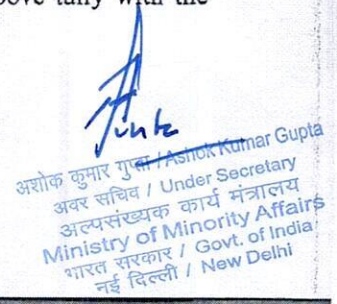 ove tally with the
अशोक कुमार गुप्ता / Ashok Kumar Gupta
अवर सचिव / Under Secretary
अल्पसंख्यक कार्य मंत्रालय
Ministry of Minority Affairs
भारत सरकार / Govt. of India
नई दिल्ली / New Delhi